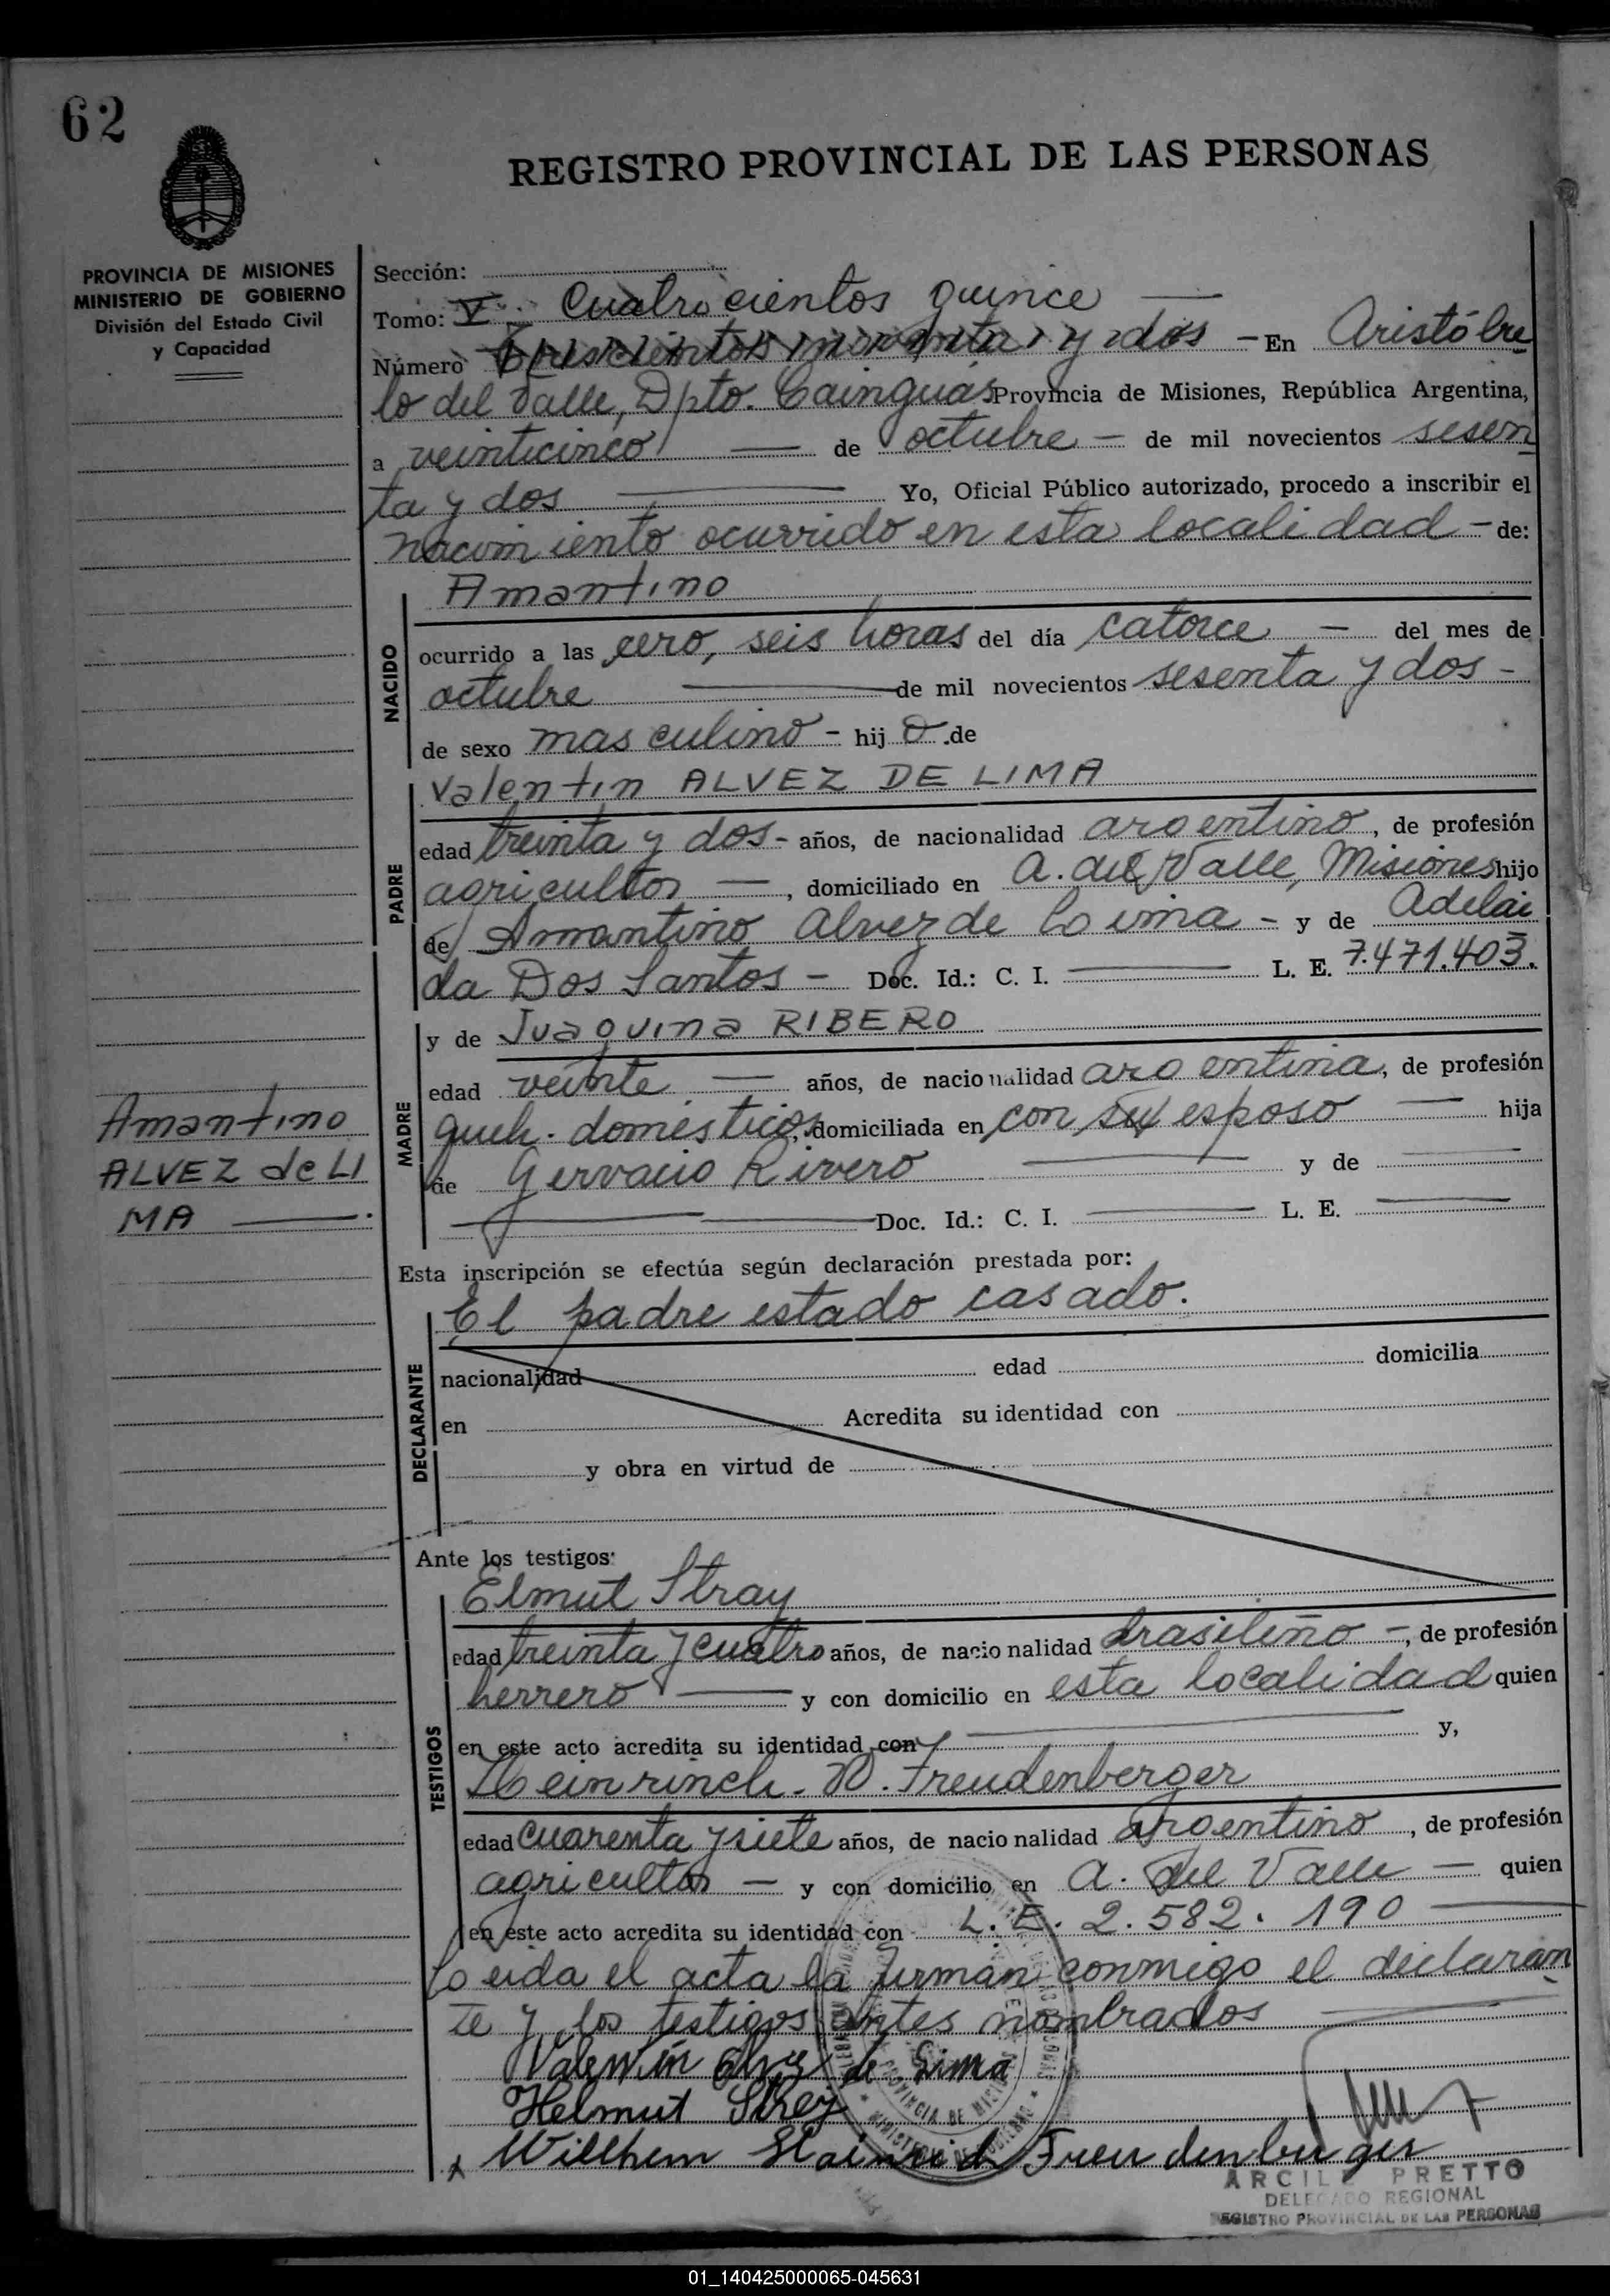 62
REGISTRO PROVINCIAL DE LAS PERSONAS
PROVINCIA DE MISIONES
MINISTERIO DE GOBIERNO
División del Estado Civil
y Capacidad
Sección:
Tomo: V. Cuatrocientos quince
Número Trescientos noventa y dos - En Aristóbu
lo del Valle, Dpto. Cainguás Provincia de Misiones, República Argentina,
a veinticinco de octubre - de mil novecientos sesen
ta y dos Yo, Oficial Público autorizado, procedo a inscribir el
nacimiento ocurrido en esta localidad - de:
Amantino
NACIDO
ocurrido a las cero, seis horas del día catorce - del mes de
octubre de mil novecientos sesenta y dos -
de sexo masculino - hijo de
Valentin ALVEZ DE LIMA
PADRE
edad treinta y dos - años, de nacionalidad argentino, de profesión
agricultor -, domiciliado en A. del Valle, Misiones hijo
de Amantino Alvez de Lima - y de Adelai
da Dos Santos - Doc. Id.: C. I. L. E. 7.471.403.
y de Juaquina RIBERO
MADRE
edad veinte - años, de nacionalidad argentina, de profesión
queh. domésticos, domiciliada en con su esposo - hija
de Gervacio Rivero y de
Doc. Id.: C. I. L. E.
Amantino
ALVEZ de LI
MA
Esta inscripción se efectúa según declaración prestada por:
El padre estado casado.
DECLARANTE
nacionalidad edad domicilia
en Acredita su identidad con
y obra en virtud de
Ante los testigos:
Elmut Stray
TESTIGOS
edad treinta y cuatro años, de nacionalidad brasileño -, de profesión
herrero y con domicilio en esta localidad quien
en este acto acredita su identidad con y,
Heinrinch. W. Freudenberger
edad cuarenta y siete años, de nacionalidad argentino, de profesión
agricultor - y con domicilio en A. del Valle - quien
en este acto acredita su identidad con L. E. 2.582.190
Leida el acta la firman conmigo el declaran
te y los testigos antes nombrados
Valentin Alvez de Lima
Helmut Strey
Willhem Heinrich Freudenberger
ARCILE PRETTO
DELEGADO REGIONAL
REGISTRO PROVINCIAL DE LAS PERSONAS
01_140425000065-045631